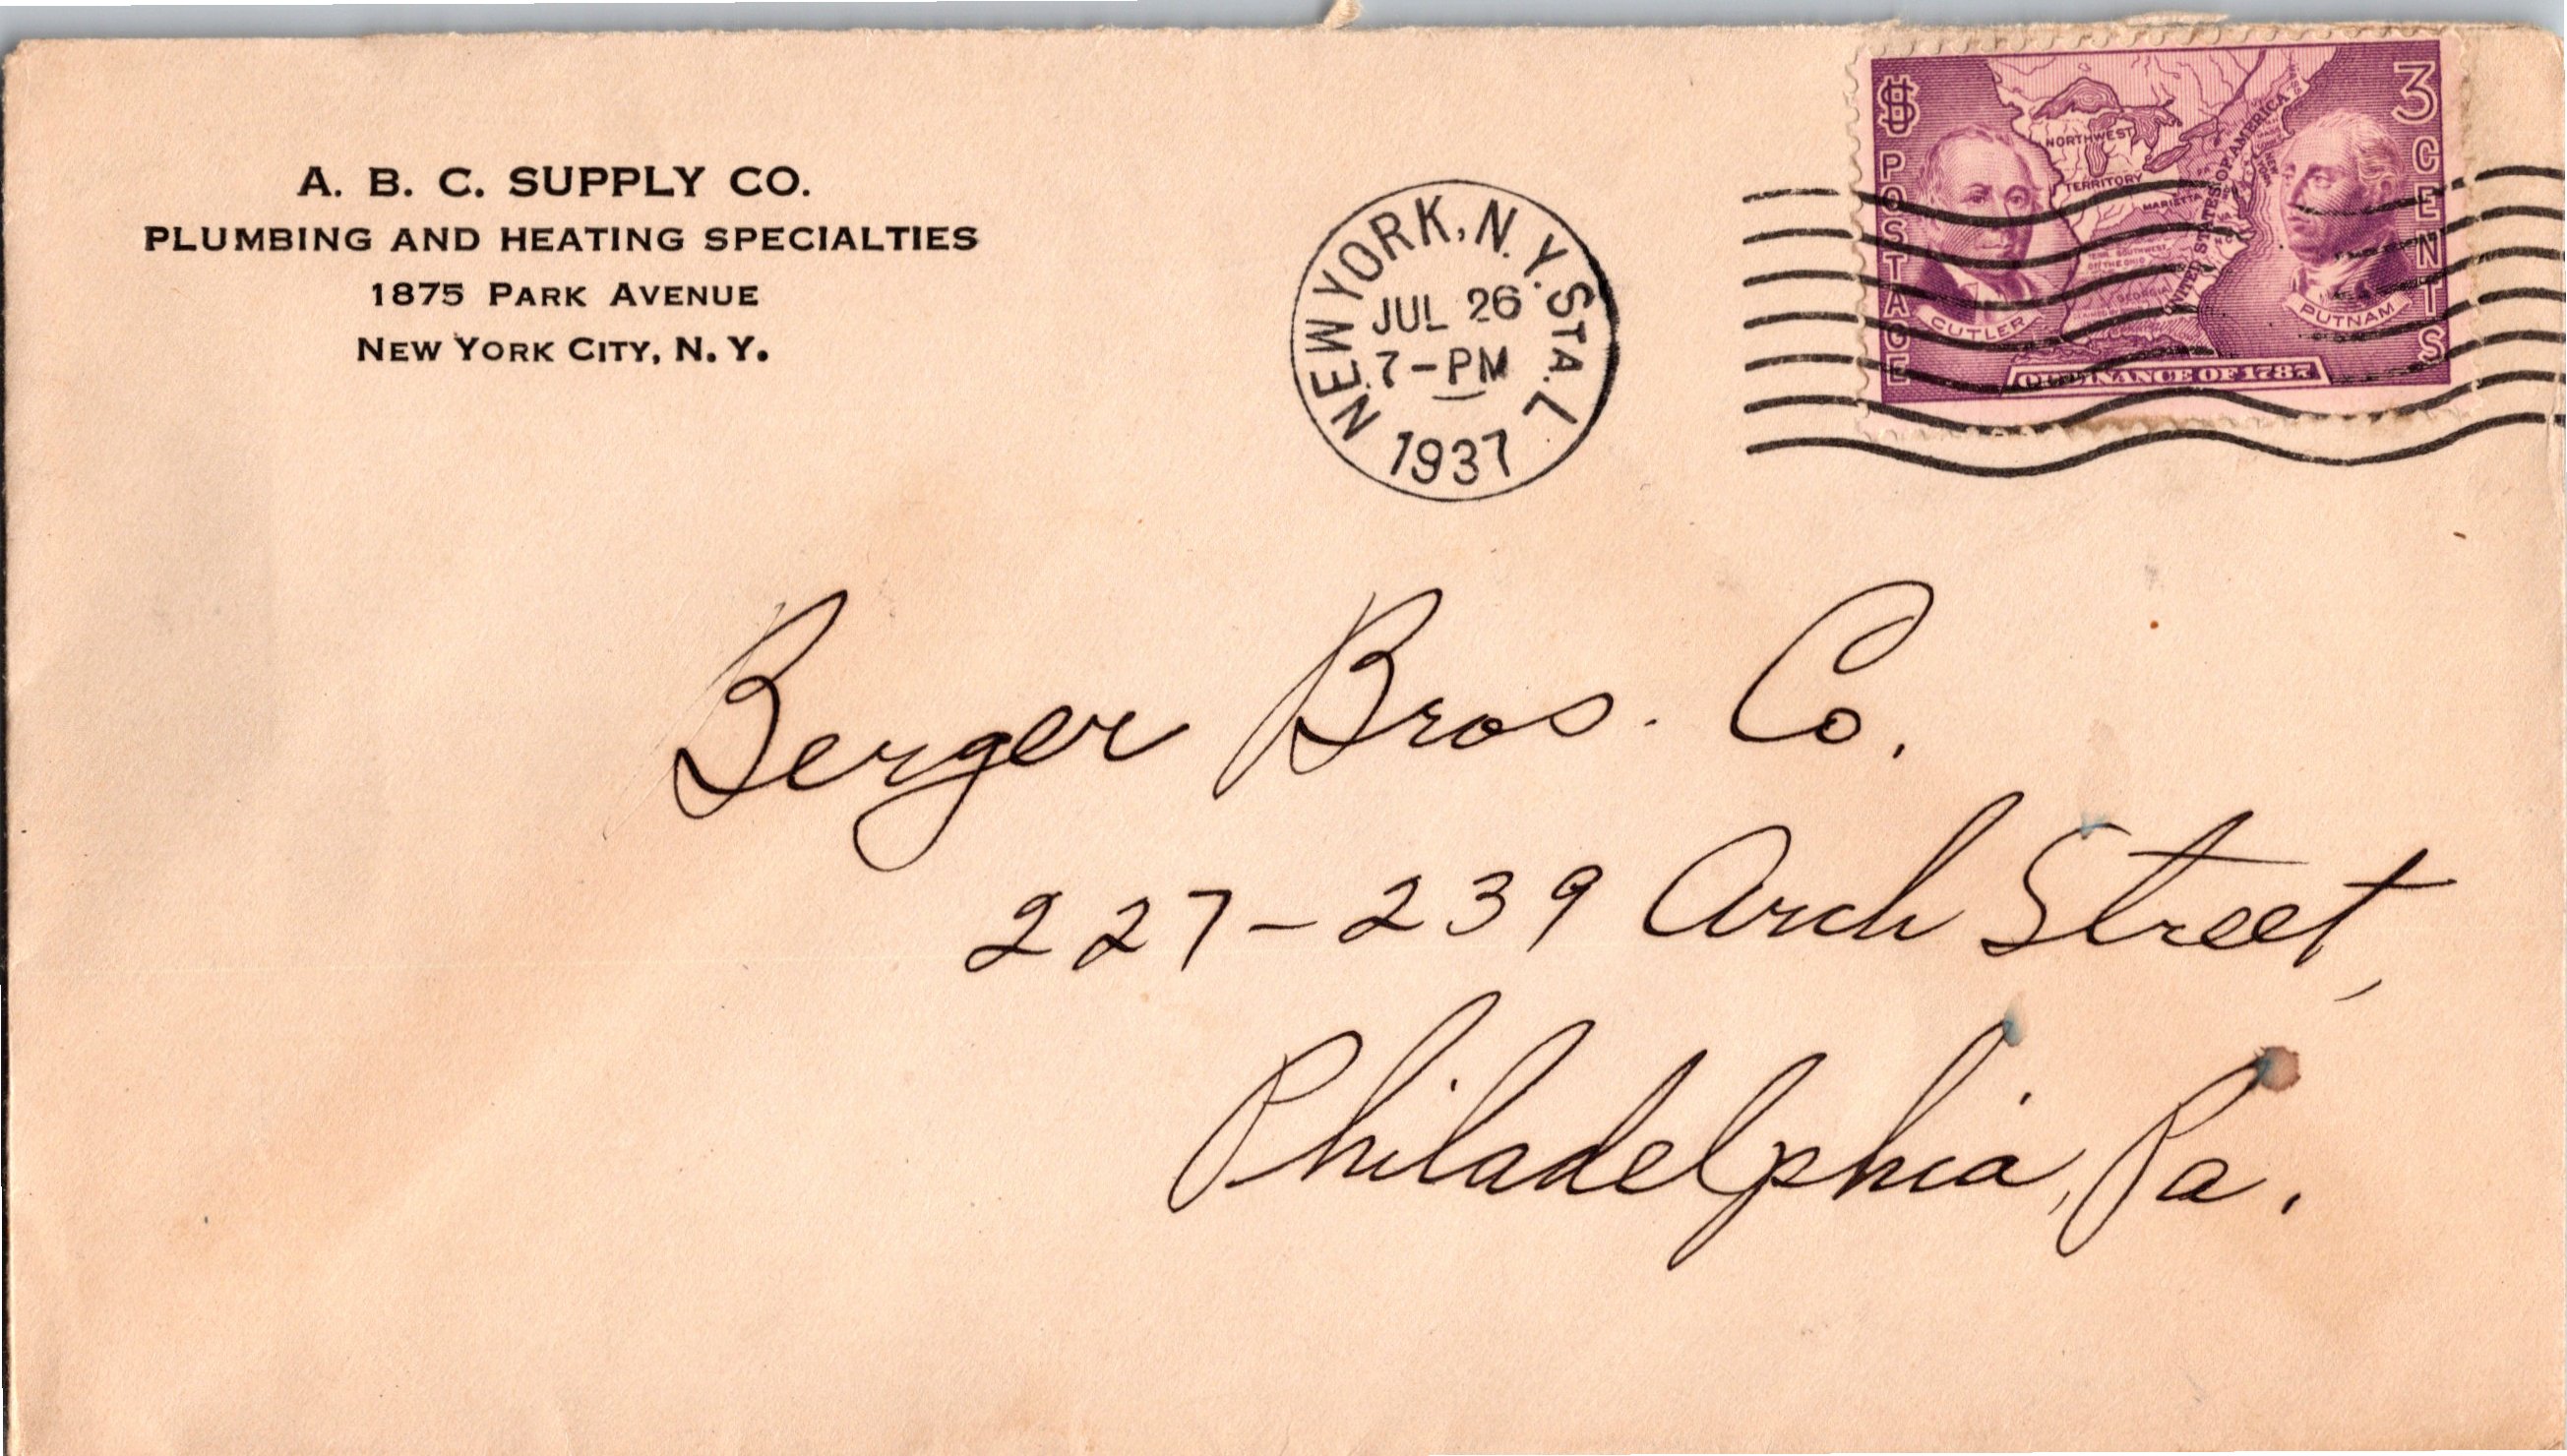 A. B. C. SUPPLY CO.
PLUMBING AND HEATING SPECIALTIES
1875 PARK AVENUE
NEW YORK CITY, N. Y.
NEW YORK, N.Y. STA. L
JUL 26
7-PM
1937
US POSTAGE
3 CENTS
NORTHWEST
TERRITORY
MARIETTA
UNITED STATES OF AMERICA
GEORGIA
CUTLER
PUTNAM
ORDINANCE OF 1787
Berger Bros. Co.
227-239 Arch Street,
Philadelphia, Pa.